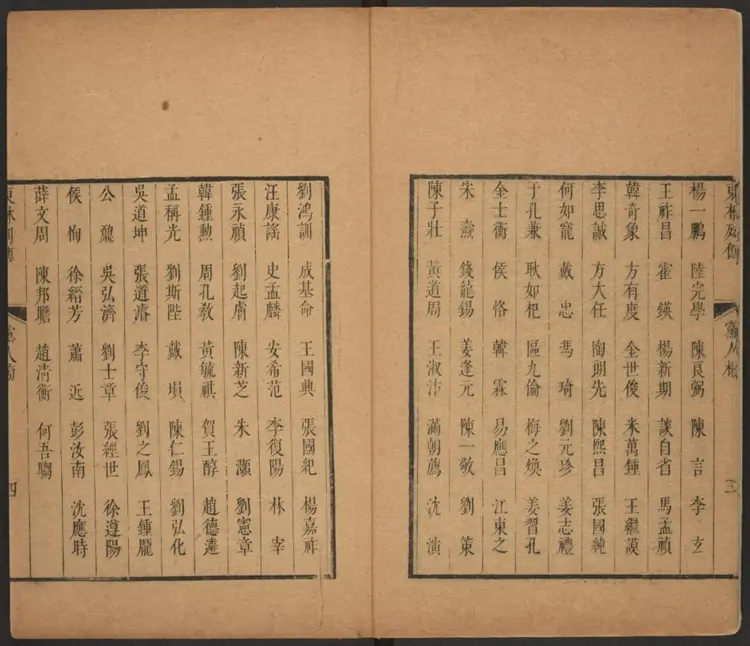 東林列傳 黨人榜 三
楊一鵬 陸完學 陳良弼 陳言 李玄
王祚昌 霍鍈 楊新期 談自省 馬孟禎
韓奇象 方有度 金世俊 米萬鍾 王繼謨
李思誠 方大任 陶朗先 陳熙昌 張國純
何如寵 戴忠 馮琦 劉元珍 姜志禮
于孔兼 耿如杞 區九倫 梅之煥 姜習孔
金士衡 侯恪 韓霖 易應昌 江東之
朱燾 錢龍錫 姜逢元 陳一敬 劉策
陳子壯 黃道周 王淑汴 滿朝薦 沈演
劉鴻訓 成基命 王國興 張國紀 楊嘉祚
汪康謠 史孟麟 安希范 李復陽 林宰
張永禎 劉起膚 陳新芝 朱灝 劉憲章
韓鍾勲 周孔教 黃毓祺 賀王醇 趙德遴
孟稱光 劉斯陛 戴塤 陳仁錫 劉弘化
吳道坤 張道濬 李守俊 劉之鳳 王鍾龐
公鼐 吳弘濟 劉士章 張經世 徐遵陽
侯恂 徐縉芳 蕭近 彭汝南 沈應時
薛文周 陳邦瞻 趙淸衡 何吾騶
東林列傳 黨人榜 四